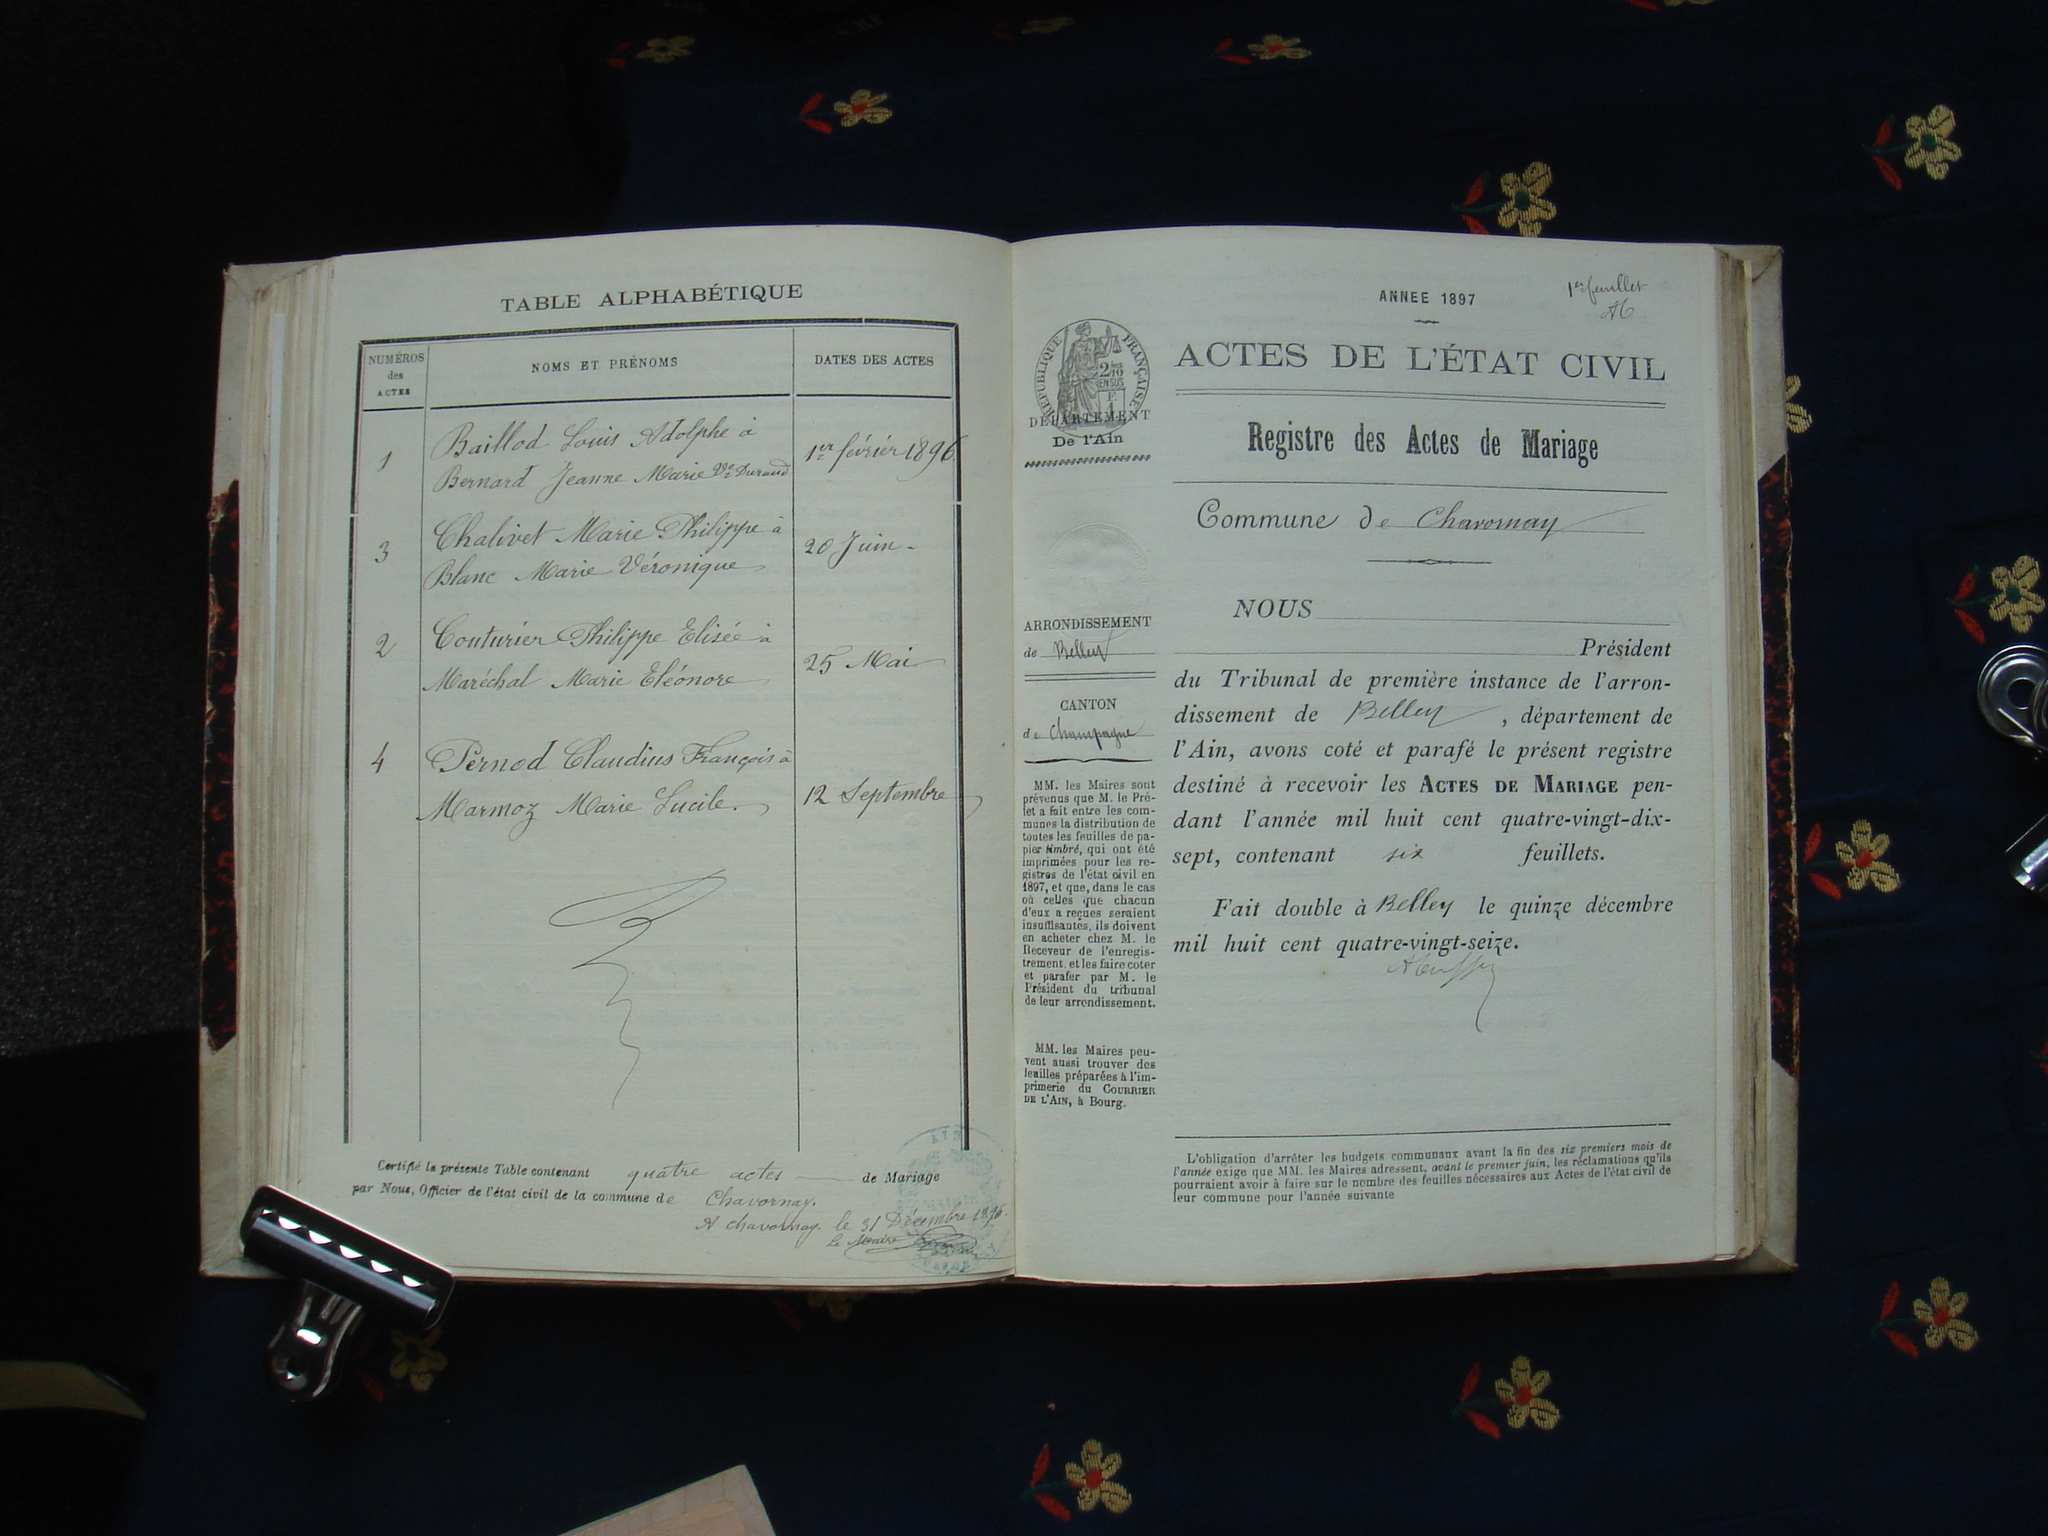 TABLE ALPHABÉTIQUE
NUMÉROS des ACTES
NOMS ET PRÉNOMS
DATES DES ACTES
1
Baillod Louis Adolphe à
Bernard Jeanne Marie Ve Durand
1er février 1896
3
Chalivet Marie Philippe à
Blanc Marie Véronique
20 Juin
2
Couturier Philippe Elisée à
Maréchal Marie Eléonore
25 Mai
4
Pernod Claudius François à
Marmoz Marie Lucile.
12 Septembre
Certifié la présente Table contenant quatre actes de Mariage
par Nous, Officier de l'état civil de la commune de Chavornay.
A chavornay. le 31 Décembre 1896.
Le Maire
1er feuillet
ANNEE 1897
RÉPUBLIQUE FRANÇAISE
DÉPARTEMENT
De l'Ain
ACTES DE L'ÉTAT CIVIL
Registre des Actes de Mariage
Commune de Chavornay
ARRONDISSEMENT
de Belley
CANTON
de Champagne
MM. les Maires sont
prévenus que M. le Pré-
fet a fait entre les com-
munes la distribution de
toutes les feuilles de pa-
pier timbré, qui ont été
imprimées pour les re-
gistres de l'état civil en
1897, et que, dans le cas
où celles que chacun
d'eux a reçues seraient
insuffisantes, ils doivent
en acheter chez M. le
Receveur de l'enregis-
trement, et les faire coter
et parafer par M. le
Président du tribunal
de leur arrondissement.
MM. les Maires peu-
vent aussi trouver des
feuilles préparées à l'im-
primerie du COURRIER
DE L'AIN, à Bourg.
NOUS
Président
du Tribunal de première instance de l'arron-
dissement de Belley, département de
l'Ain, avons coté et parafé le présent registre
destiné à recevoir les ACTES DE MARIAGE pen-
dant l'année mil huit cent quatre-vingt-dix-
sept, contenant six feuillets.
Fait double à Belley le quinze décembre
mil huit cent quatre-vingt-seize.
L'obligation d'arrêter les budgets communaux avant la fin des six premiers mois de
l'année exige que MM. les Maires adressent, avant le premier juin, les réclamations qu'ils
pourraient avoir à faire sur le nombre des feuilles nécessaires aux Actes de l'état civil de
leur commune pour l'année suivante